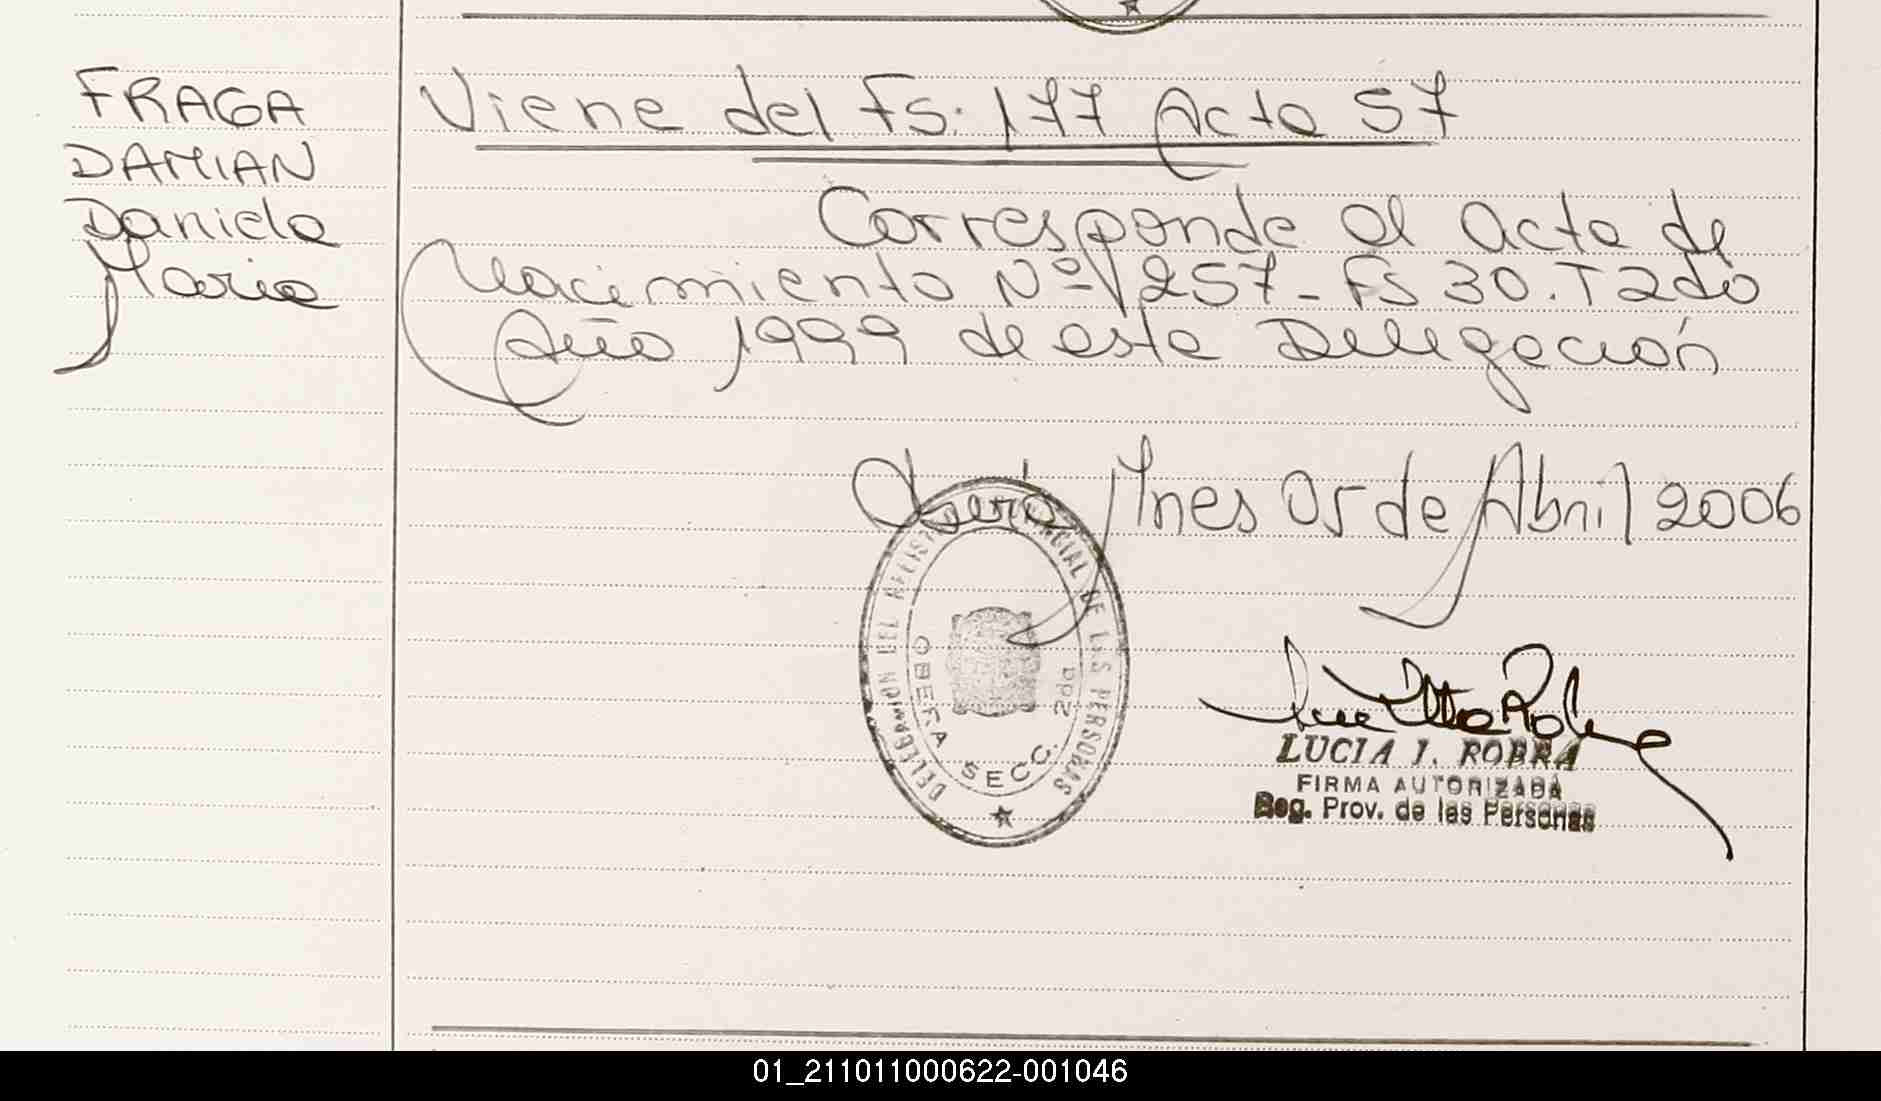 FRAGA
DAMIAN
Daniela
Maria
Viene del Fs. 177 Acta 57
Corresponde al acta de
Nacimiento Nº 1257 - Fs 30. T 2do
Año 1999 de esta Delegación
Ines 05 de Abril 2006
DELEGACION DEL REGISTRO PROVINCIAL DE LAS PERSONAS
OBERA SECC. 2da
LUCIA I. ROBRA
FIRMA AUTORIZADA
Reg. Prov. de las Personas
01_211011000622-001046